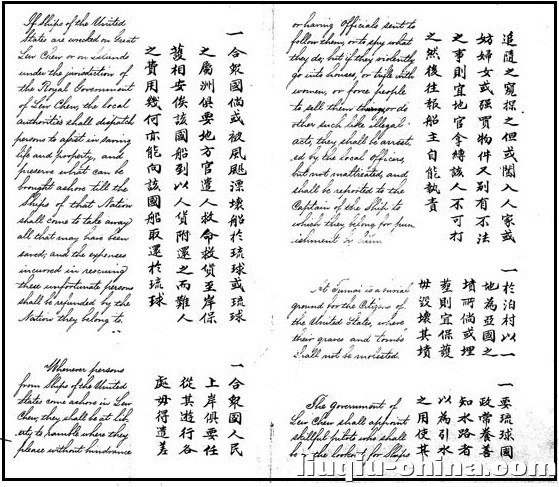 If Ships of the United
States are wrecked on Great
Lew Chew or on Islands
under the jurisdiction of
the Royal Government
of Lew Chew, the local
authorities shall dispatch
persons to assist in saving
life and property, and
preserve what can be
brought ashore till the
Ships of that Nation
shall come to take away
all that may have been
saved; and the expenses
incurred in rescuing
these unfortunate persons
shall be refunded by the
Nation they belong to.
一合衆國倘或被風颶漂壞船於琉球或琉球
之屬洲俱要地方官遣人救命救貨至岸保
護相安俟該國船到以人貨附還之而難人
之費用幾何亦能向該國船取還於琉球
Whenever persons
from Ships of the United
States come ashore in Lew
Chew, they shall be at lib-
erty to ramble where they
please without hindrance
一合衆國人民
上岸俱要任
從其遊行各
處毋得遣差
or having Officials sent to
follow them, or to spy what
they do; but if they violently
go into houses, or trifle with
women, or force people
to sell them things, or do
other such like illegal
acts, they shall be arrest-
ed by the local officers,
but not maltreated, and
shall be reported to the
Captain of the Ship to
which they belong for pun-
ishment by him
追隨之窺探之但或闖入人家或
妨婦女或强買物件又別有不法
之事則宜地官拿縛該人不可打
之然後往報船主自能執責
At Tumai is a burial
ground for the Citizens of
the United States, where
their graves and tombs
shall not be molested.
一於泊村以一
地為亞國之
墳所倘或埋
葬則宜保護
毋毀壞其墳
The government of
Lew Chew shall appoint
skillful pilots who shall
be on the lookout for Ships
一要琉球國
政常養善
知水路者
以為引水
之用使其
liuqiu-china.com